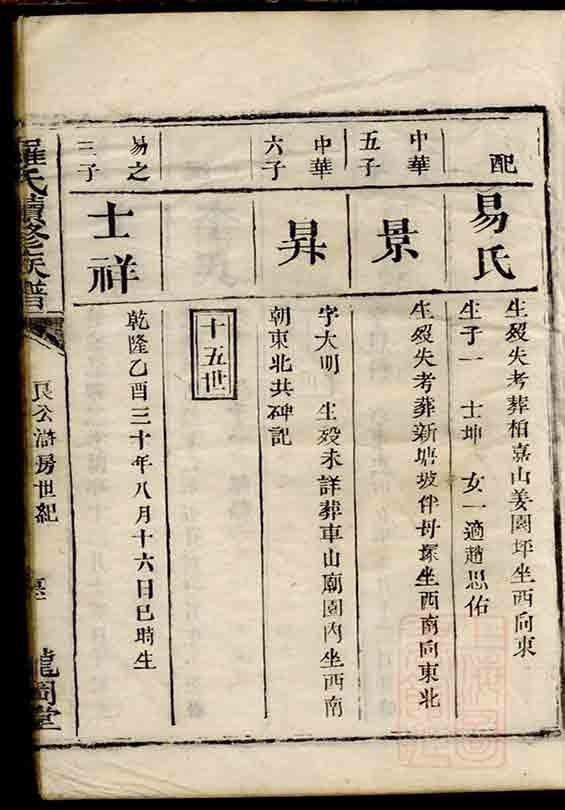 配
易氏
生歿失考葬柏嘉山姜園坪坐西向東
生子一 士坤 女一適趙思佑
中華
五子
景
生歿失考葬新塘坡伴母塚坐西南向東北
中華
六子
昇
字大明 生歿未詳葬車山廟園內坐西南
朝東北共碑記
十五世
易之
三子
士祥
乾隆乙酉三十年八月十六日巳時生
羅氏續修族譜
良公滸房世紀
龍岡堂